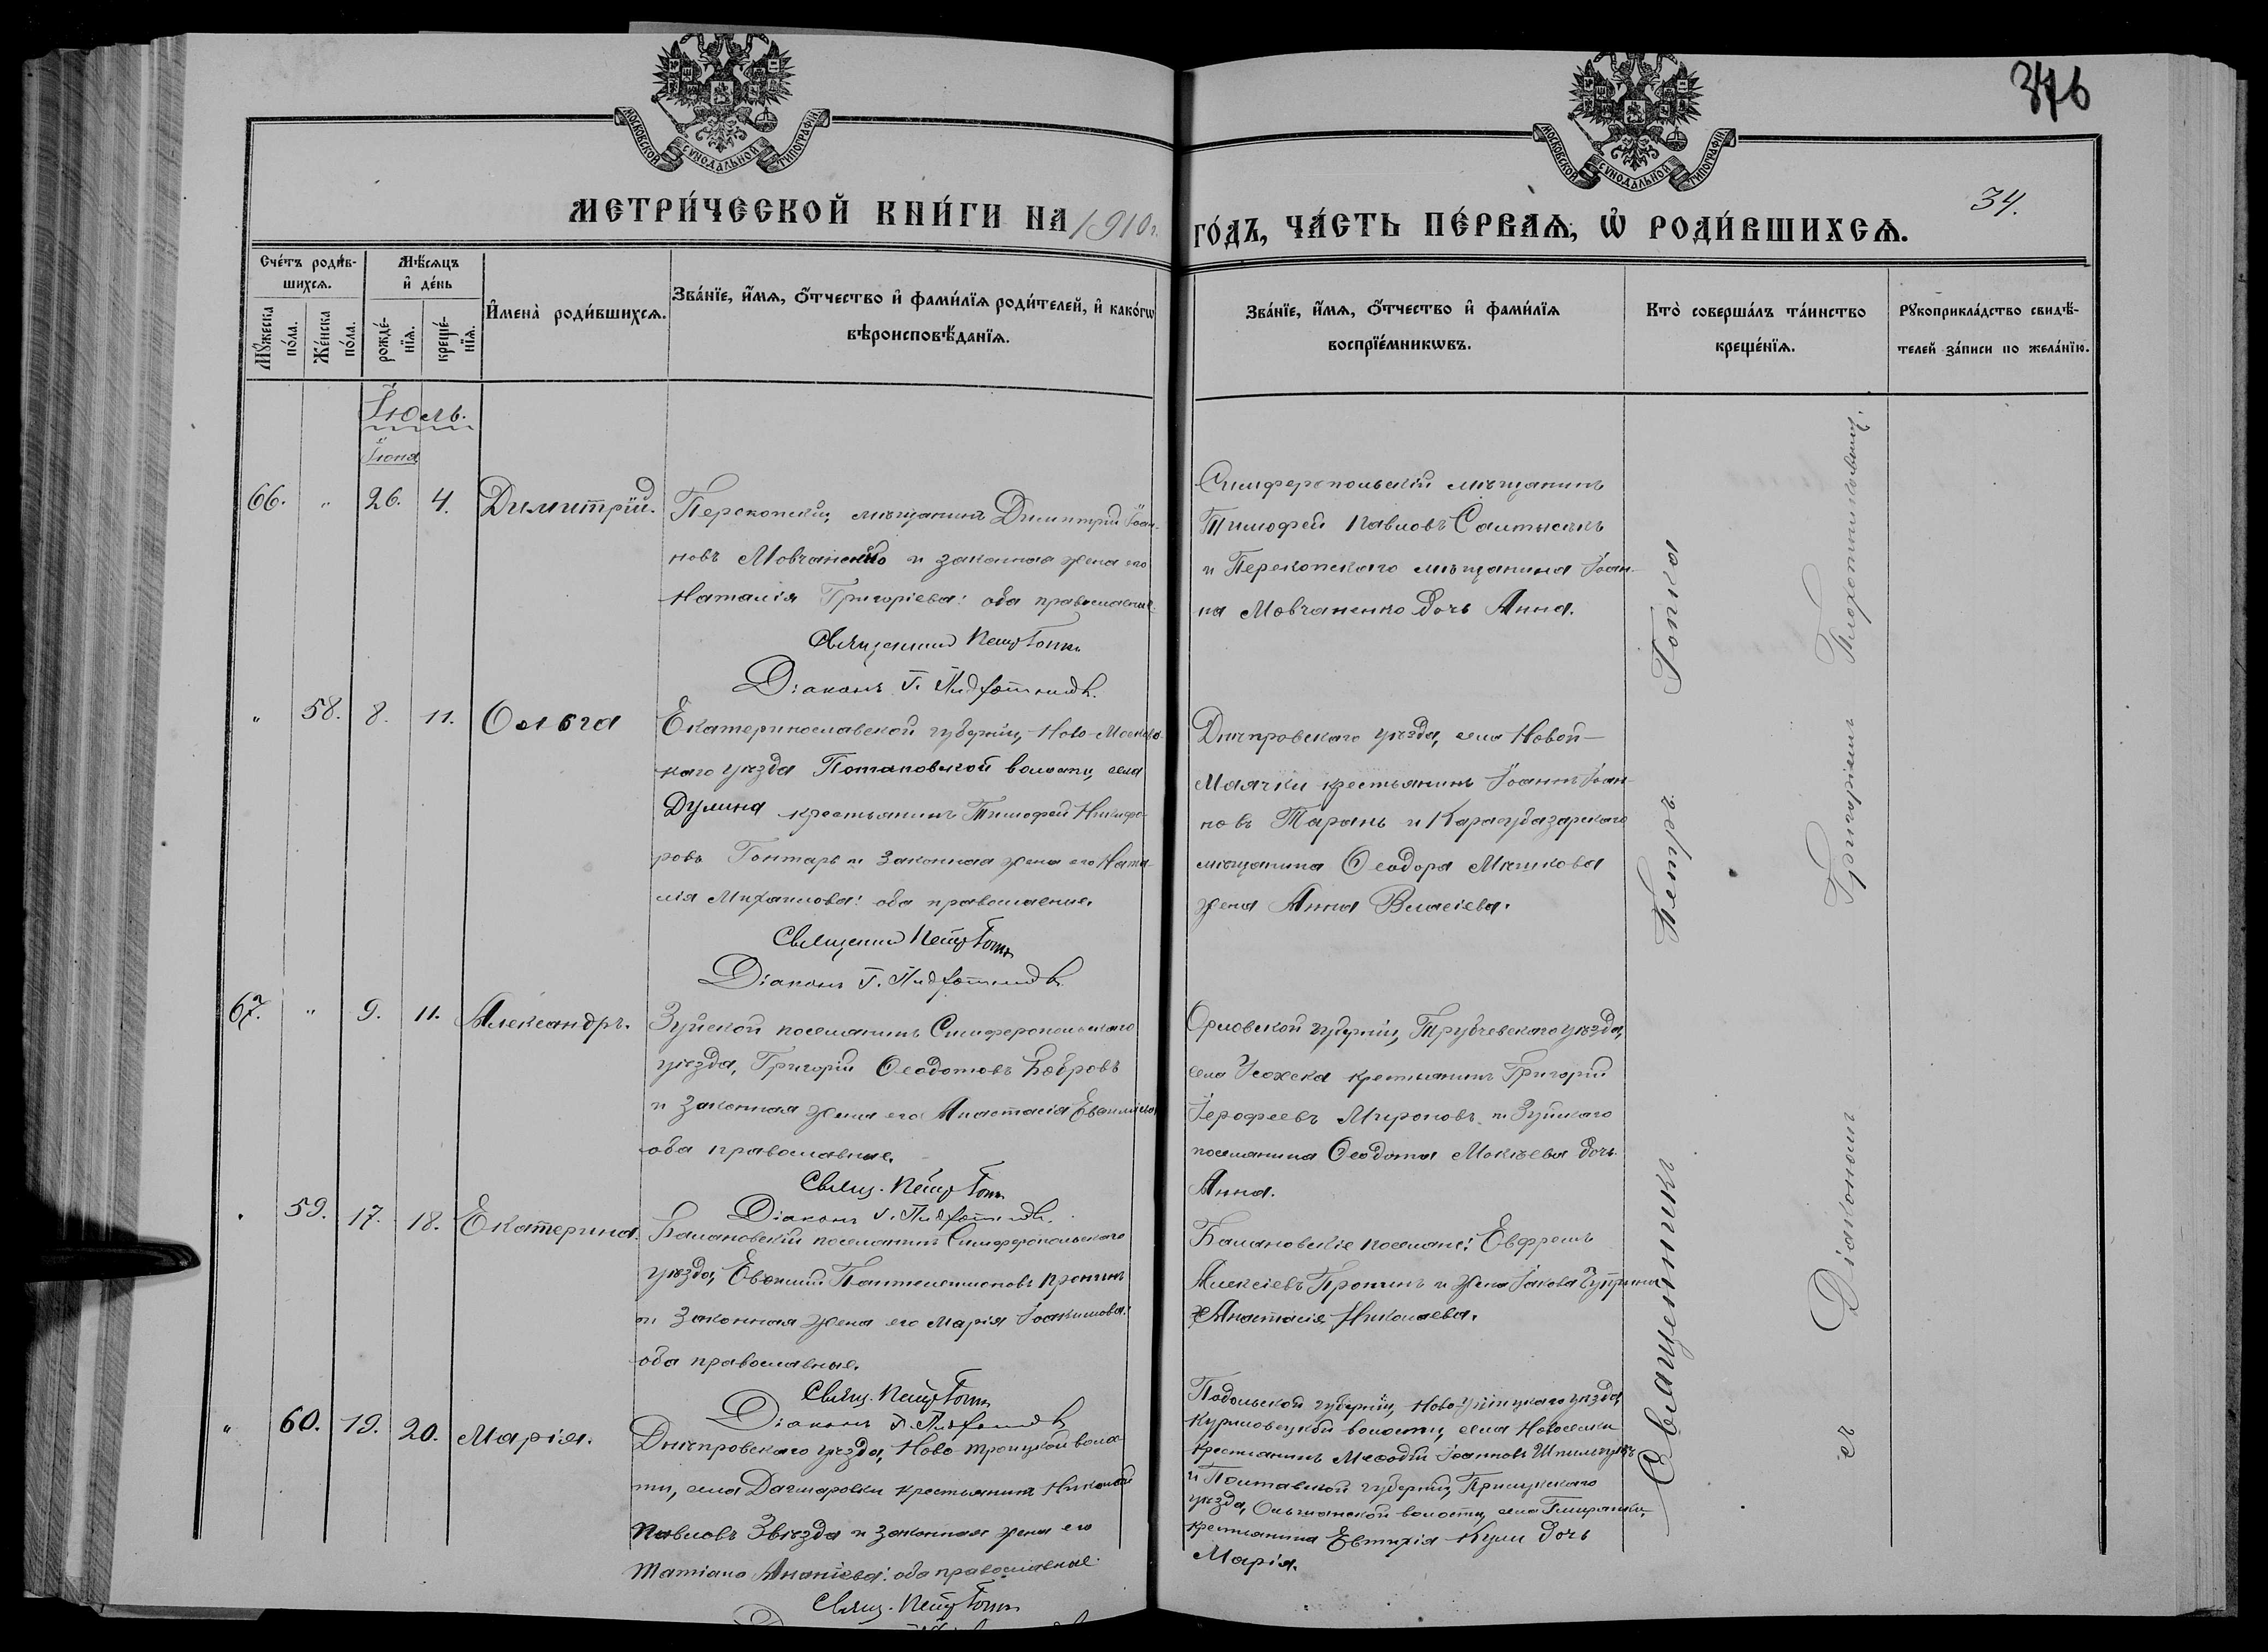 376
34.
МОСКОВСКОЙ СУНОДАЛЬНОЙ ТИПОГРАФІИ
МОСКОВСКОЙ СУНОДАЛЬНОЙ ТИПОГРАФІИ
МЕТРИ́ЧЕСКОЙ КНИ́ГИ НА 1910 г.
ГО́ДЪ, ЧА́СТЬ ПЕ́РВАѦ, Ѡ РОДИ́ВШИХСѦ.
Сче́тъ роди́вшихсѧ.
Мꙋ́жеска по́ла.
Же́нска по́ла.
Мѣ́сѧцъ и҆ де́нь
рожде́нїѧ.
креще́нїѧ.
И҆мена̀ роди́вшихсѧ.
Зва́нїе, и҆́мѧ, ѻ҆́тчество и҆ фами́лїѧ роди́телей, и҆ како́гѡ
вѣроисповѣ́данїѧ.
Зва́нїе, и҆́мѧ, ѻ҆́тчество и҆ фами́лїѧ
воспрїе́мникѡвъ.
Кто̀ соверша́лъ та́инство
креще́нїѧ.
Рꙋкоприкла́дство свидѣ́-
телей за́писи по жела́нїю.
Іюль.
Іюня
66. " 26. 4. Димитрій.
Перекопскій мѣщанинъ Димитрій Іоан-
новъ Мовчаненко и законная жена его
Наталія Григоріева: оба православные.
Священникъ Петръ Гопко
Діаконъ Г.
Симферопольскій мѣщанинъ
Тимофей Павловъ Салтысякъ
и Перекопскаго мѣщанина Іоан-
на Мовчаненко дочь Анна.
" 58. 8. 11. Ольга
Екатеринославской губерніи, Ново-Московс-
каго уѣзда Потаповской волости, села
Дулина крестьянинъ Тимофей Никифо-
ровъ Гонтарь и законная жена его Ната-
лія Михаилова: оба православные.
Священникъ Петръ Гопко
Діаконъ Г.
Днѣпровскаго уѣзда, села Новой-
Маячки крестьянинъ Іоаннъ Іоан-
новъ Тарань и Карасубазарскаго
мѣщанина Ѳеодора Мѣшкова
жена Анна Власіева.
67. " 9. 11. Александръ.
Зуйской поселянинъ Симферопольскаго
уѣзда, Григорій Ѳеодотовъ Бобровъ
и законная жена его Анастасія
оба православные.
Свящ. Петръ Гопко
Діаконъ Г.
Орловской губерніи, Трубчевскаго уѣзда,
села Усоха крестьянинъ Григорій
Іерофеевъ Мироновъ и Зуйскаго
поселянина Ѳеодота Мокѣева дочь
Анна.
" 59. 17. 18. Екатерина.
Балановскій поселянинъ Симферопольскаго
уѣзда, Евѳимій Пантелеимоновъ Пронинъ
и законная жена его Марія Іоакимова:
оба православные.
Свящ. Петръ Гопко
Діаконъ Г.
Балановскіе поселяне: Евфремъ
Алексіевъ Пронинъ и жена Іакова Чуприна
Анастасія Николаева.
" 60. 19. 20. Марія.
Днѣпровскаго уѣзда, Ново-Троицкой волос-
ти, села Дагмаровки крестьянинъ Николай
Павловъ Звѣзда и законная жена его
Татіана Ананіева: оба православные.
Свящ. Петръ Гопко
Подольской губерніи, Ново-Ушицкаго уѣзда,
Куриловецкой волости, села Новоселки
крестьянинъ Меѳодій Іоанновъ
и Полтавской губерніи, Прилукскаго
уѣзда, Ольшанской волости, села
крестьянина Евтихія Кули дочь
Марія.
Священникъ Петръ Гопко
съ Діакономъ Григоріемъ